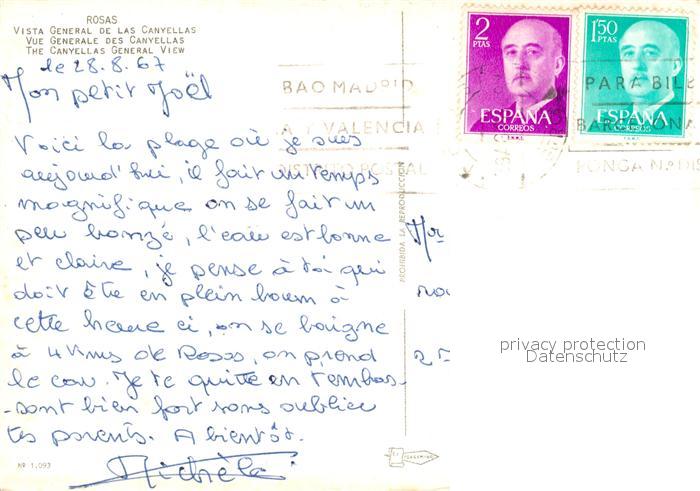 ROSAS
VISTA GENERAL DE LAS CANYELLAS
VUE GENERALE DES CANYELLAS
THE CANYELLAS GENERAL VIEW
le 28.8.67
Mon petit Joël
Voici la plage où je suis
aujourd'hui, il fait un temps
magnifique on se fait un
peu bronzé, l'eau est bonne
et claire, je pense à toi qui
doit être en plein boum à
cette heure ci, on se baigne
à 4 Kms de Rosas, on prend
le car. Je te quitte en t'embras-
-sant bien fort sans oublier
tes parents. A bientôt.
Michèle
Nº 1.093
PROHIBIDA LA REPRODUCCION
2
PTAS
ESPAÑA
CORREOS
1'50
PTAS
ESPAÑA
CORREOS
BAO MADRID
VALENCIA
DISTRITO POSTAL
PARA BILB
BARCELONA
PONGA Nº DIS
Mr
privacy protection
Datenschutz